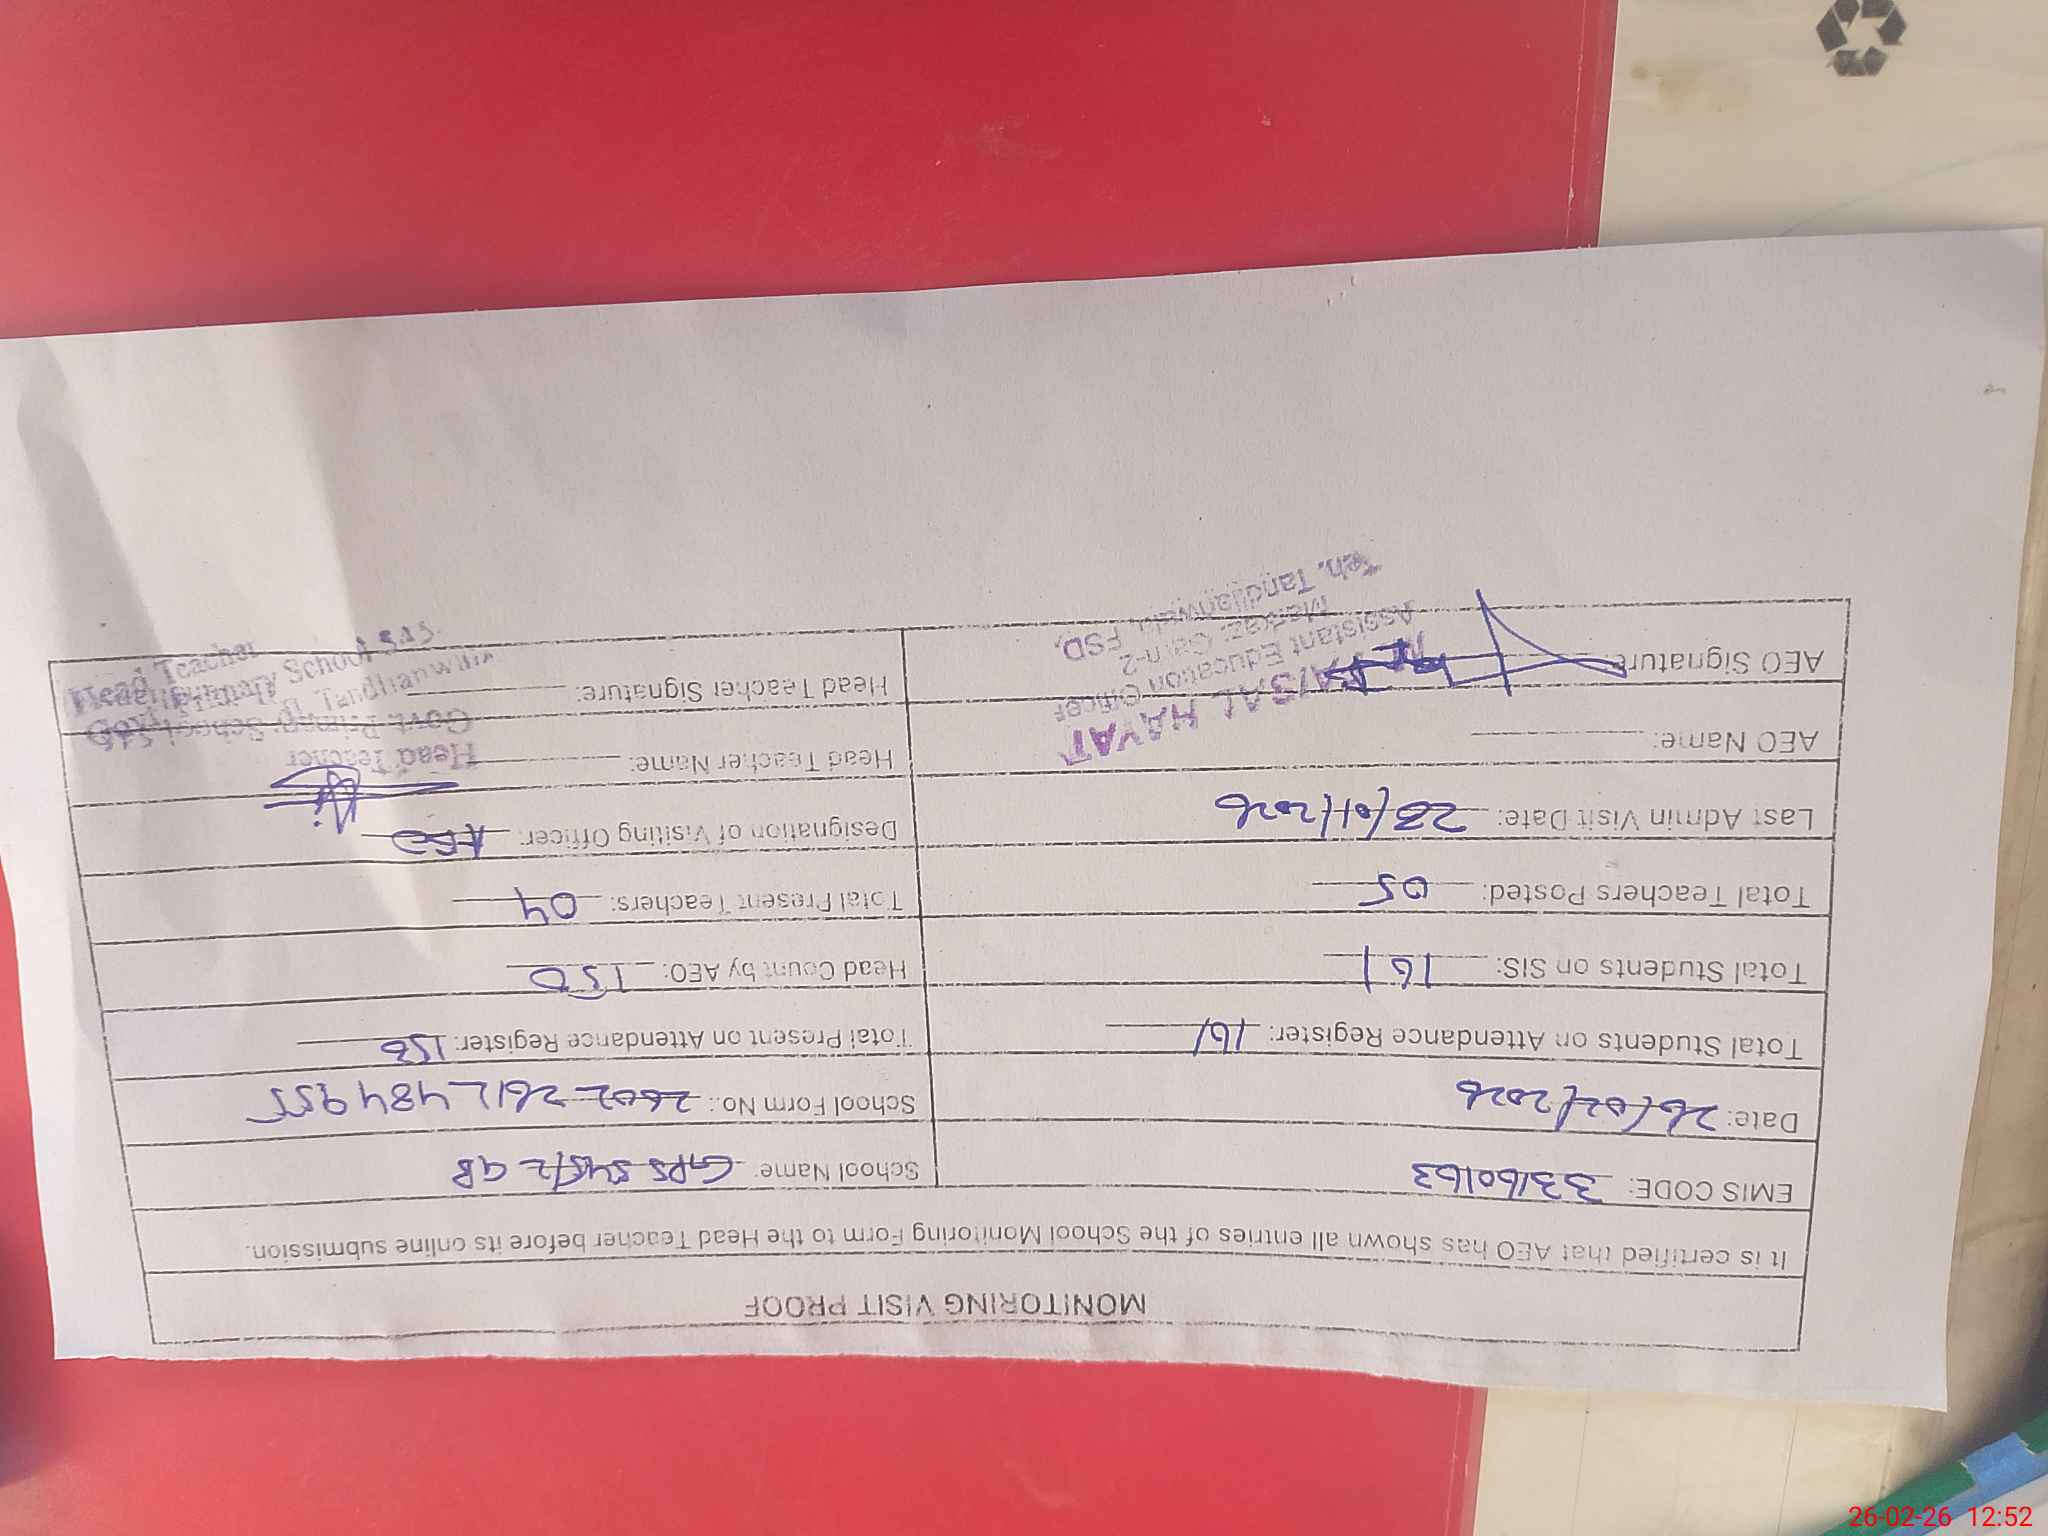 MONITORING VISIT PROOF
It is certified that AEO has shown all entries of the School Monitoring Form to the Head Teacher before its online submission.
EMIS CODE: 33160163
School Name: GPS 545/2 GB
Date: 26/02/2026
School Form No.: 2602 2612 484955
Total Students on Attendance Register: 161
Total Present on Attendance Register: 153
Total Students on SIS: 161
Head Count by AEO: 150
Total Teachers Posted: 05
Total Present Teachers: 04
Last Admin Visit Date: 23/01/2026
Designation of Visiting Officer: AEO
AEO Name:
Head Teacher Name:
Head Teacher
AEO Signature:
FAISAL HAYAT
Assistant Education Officer
Markaz:
Teh. Tandlianwala, FSD.
Head Teacher Signature:
Govt. Primary School
Tandlianwala
Head Teacher
26-02-26 12:52